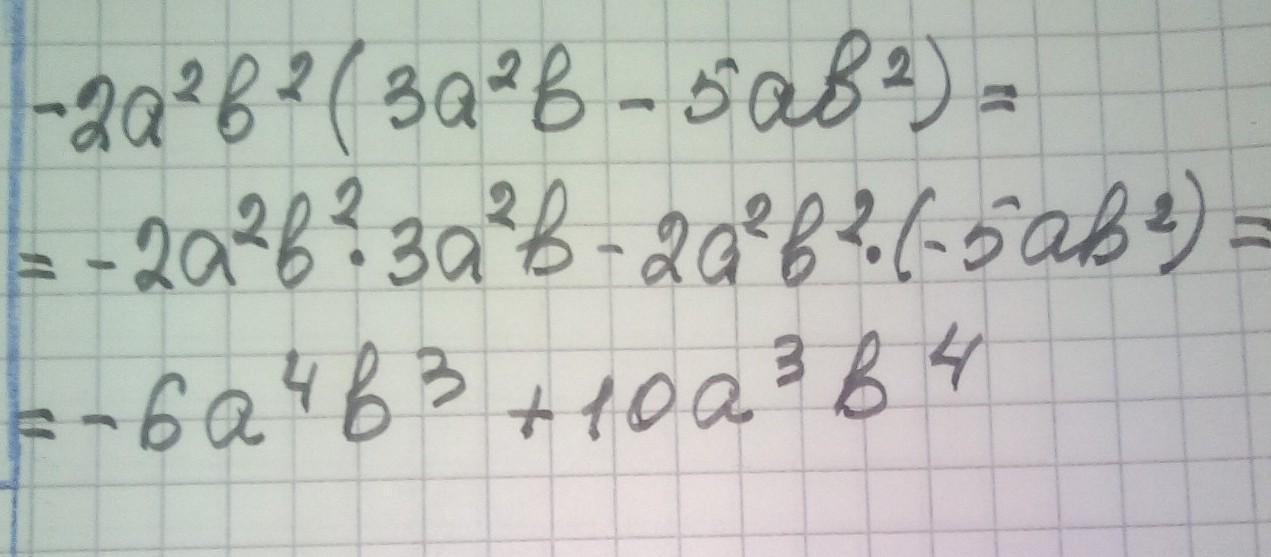 -2a²b²(3a²b - 5ab²) =
= -2a²b² · 3a²b - 2a²b² · (-5ab²) =
= -6a⁴b³ + 10a³b⁴